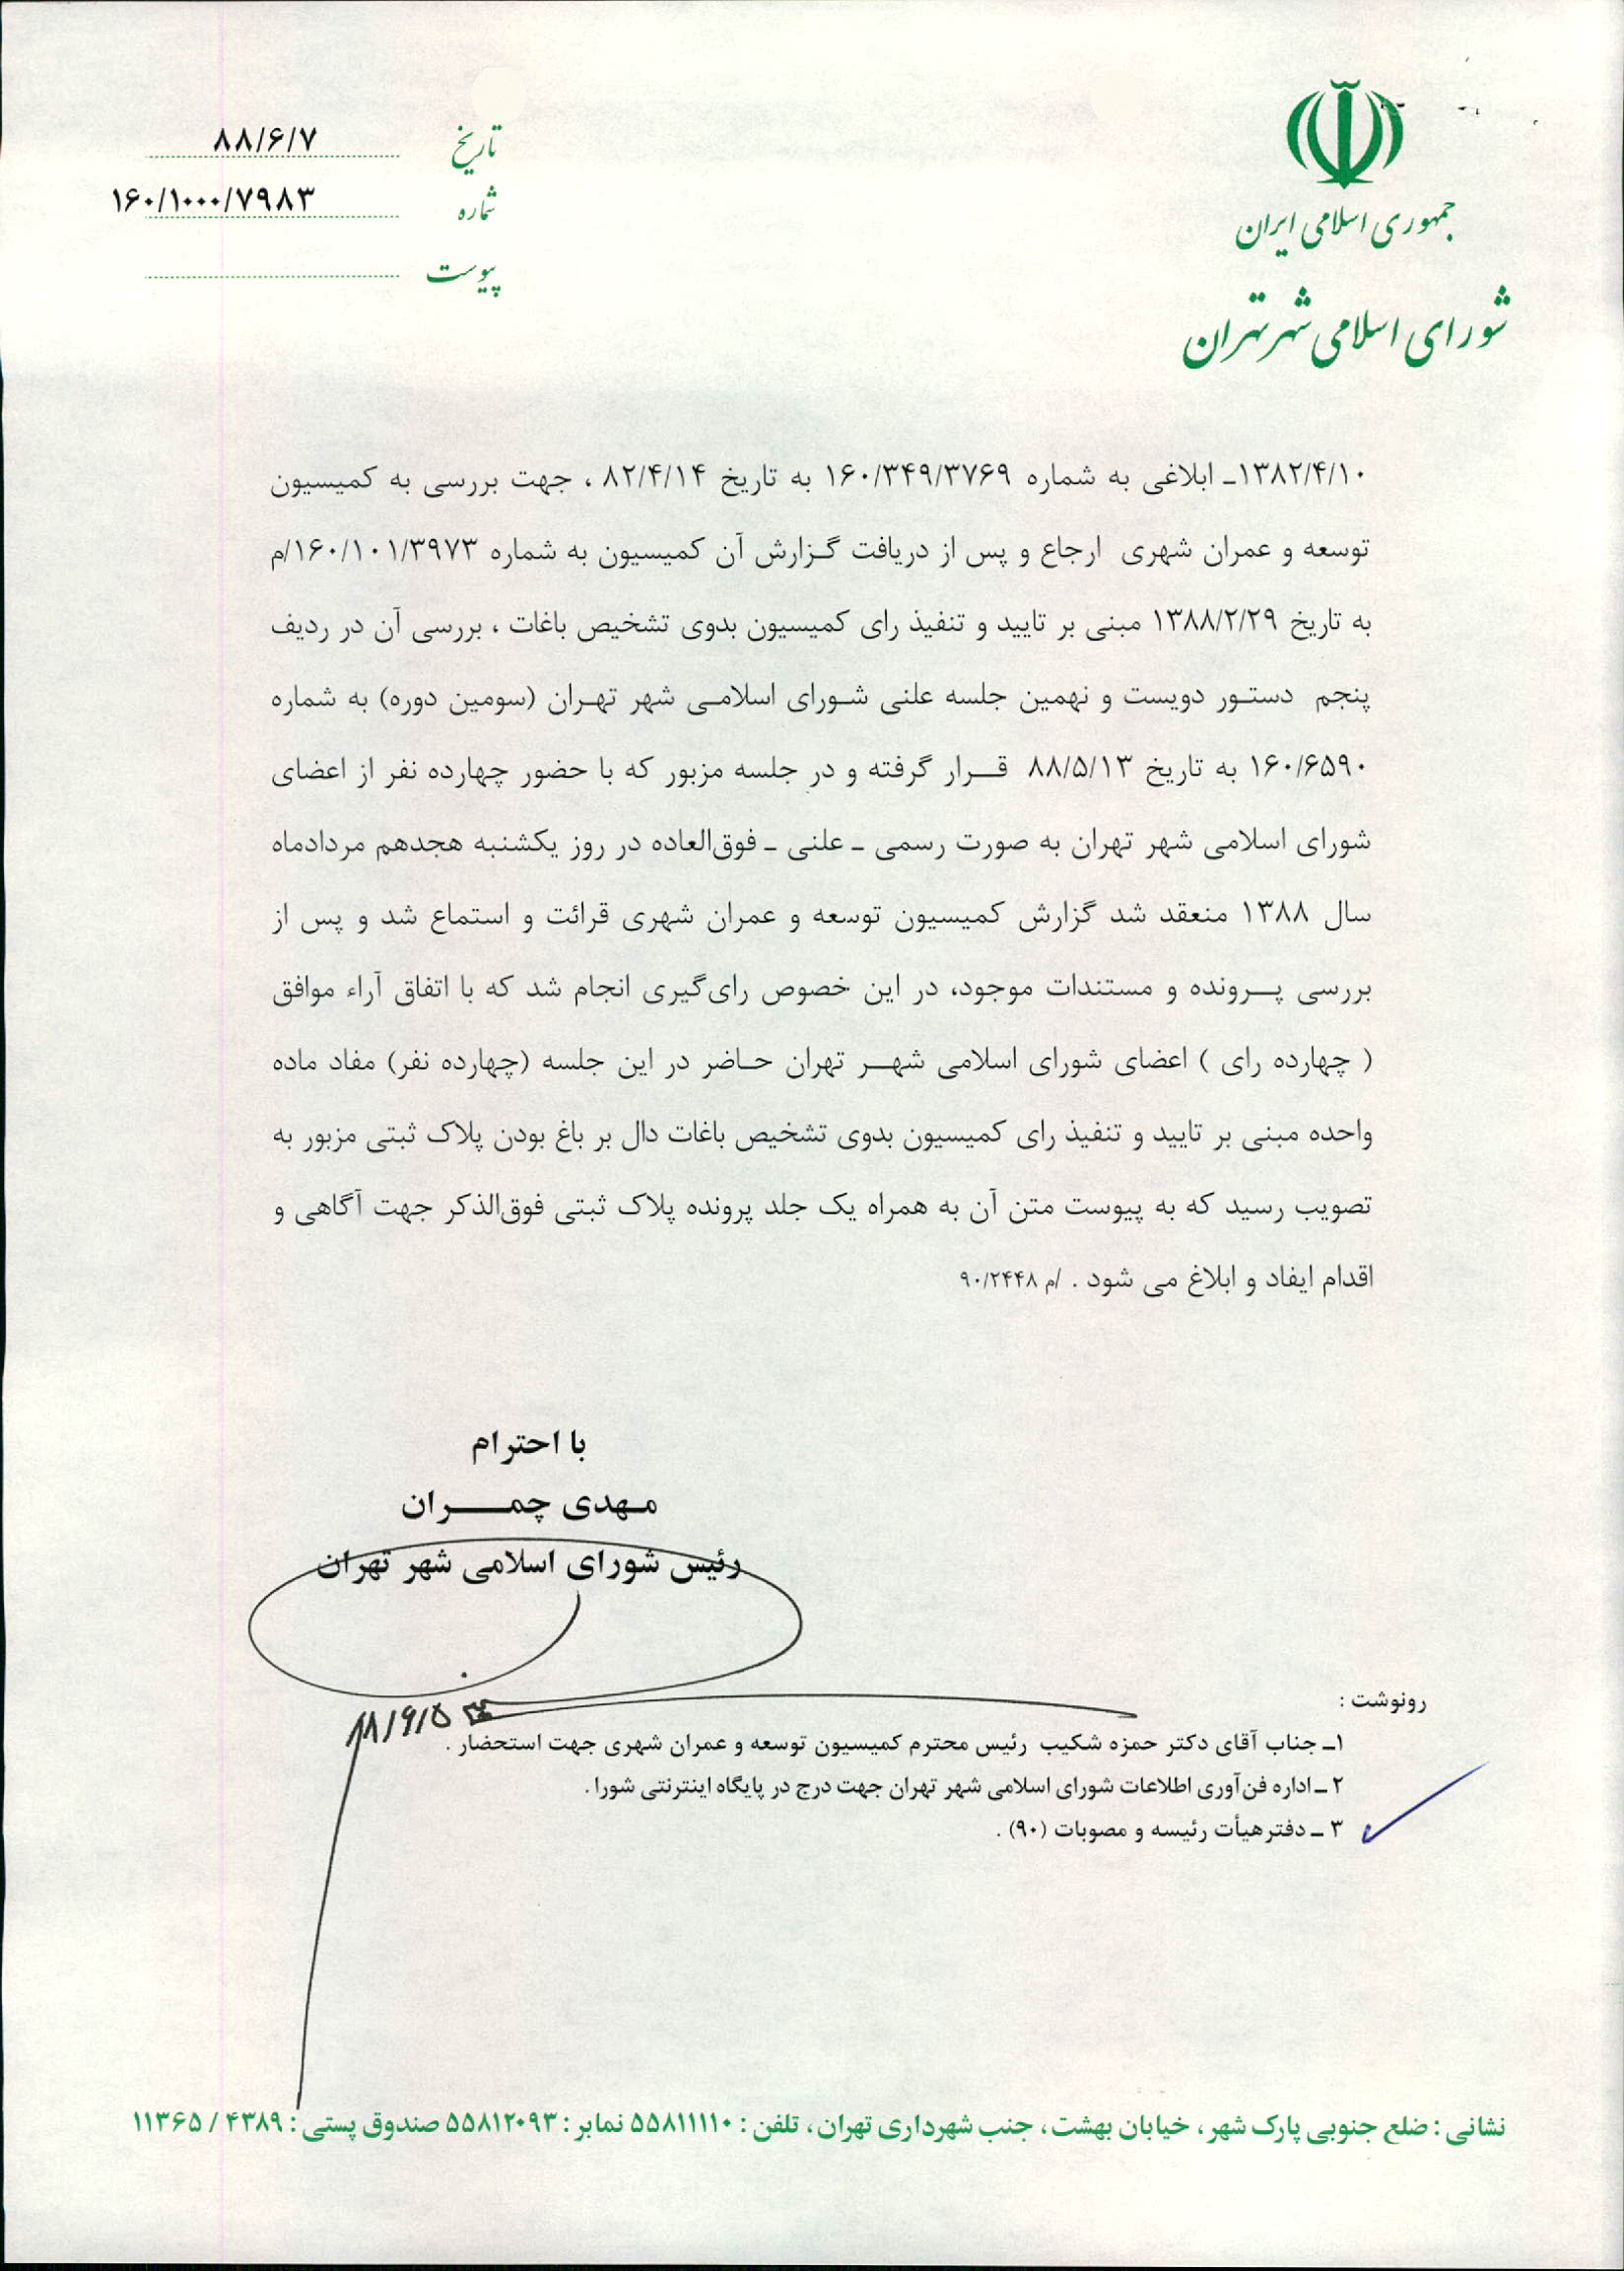 جمهوری اسلامی ایران
شورای اسلامی شهر تهران
تاریخ ۸۸/۶/۷
شماره ۱۶۰/۱۰۰۰/۷۹۸۳
پیوست
۱۳۸۲/۴/۱۰ـ ابلاغی به شماره ۱۶۰/۳۴۹/۳۷۶۹ به تاریخ ۸۲/۴/۱۴ ، جهت بررسی به کمیسیون
توسعه و عمران شهری ارجاع و پس از دریافت گـزارش آن کمیسیون به شماره ۱۶۰/۱۰۱/۳۹۷۳/م
به تاریخ ۱۳۸۸/۲/۲۹ مبنی بر تایید و تنفیذ رای کمیسیون بدوی تشخیص باغات ، بررسی آن در ردیف
پنجم دستـور دویست و نهمین جلسه علنی شـورای اسلامـی شهر تهـران (سومین دوره) به شماره
۱۶۰/۶۵۹۰ به تاریخ ۸۸/۵/۱۳ قـــرار گرفته و در جلسه مزبور که با حضور چهارده نفر از اعضای
شورای اسلامی شهر تهران به صورت رسمی ـ علنی ـ فوق‌العاده در روز یکشنبه هجدهم مردادماه
سال ۱۳۸۸ منعقد شد گزارش کمیسیون توسعه و عمران شهری قرائت و استماع شد و پس از
بررسی پـــرونده و مستندات موجود، در این خصوص رای‌گیری انجام شد که با اتفاق آراء موافق
( چهارده رای ) اعضای شورای اسلامی شهـــر تهران حـاضر در این جلسه (چهارده نفر) مفاد ماده
واحده مبنی بر تایید و تنفیذ رای کمیسیون بدوی تشخیص باغات دال بر باغ بودن پلاک ثبتی مزبور به
تصویب رسید که به پیوست متن آن به همراه یک جلد پرونده پلاک ثبتی فوق‌الذکر جهت آگاهی و
اقدام ایفاد و ابلاغ می شود . /م ۹۰/۲۴۴۸
با احترام
مـهدی چمـــــران
رئیس شورای اسلامی شهر تهران
۸۸/۶/۵
رونوشت :
۱ـ جناب آقای دکتر حمزه شکیب رئیس محترم کمیسیون توسعه و عمران شهری جهت استحضار .
۲ ـ اداره فن‌آوری اطلاعات شورای اسلامی شهر تهران جهت درج در پایگاه اینترنتی شورا .
۳ ـ دفتر هیأت رئیسه و مصوبات (۹۰) .
نشانی : ضلع جنوبی پارک شهر ، خیابان بهشت ، جنب شهرداری تهران ، تلفن : ۵۵۸۱۱۱۱۰ نمابر : ۵۵۸۱۲۰۹۳ صندوق پستی : ۴۳۸۹ / ۱۱۳۶۵